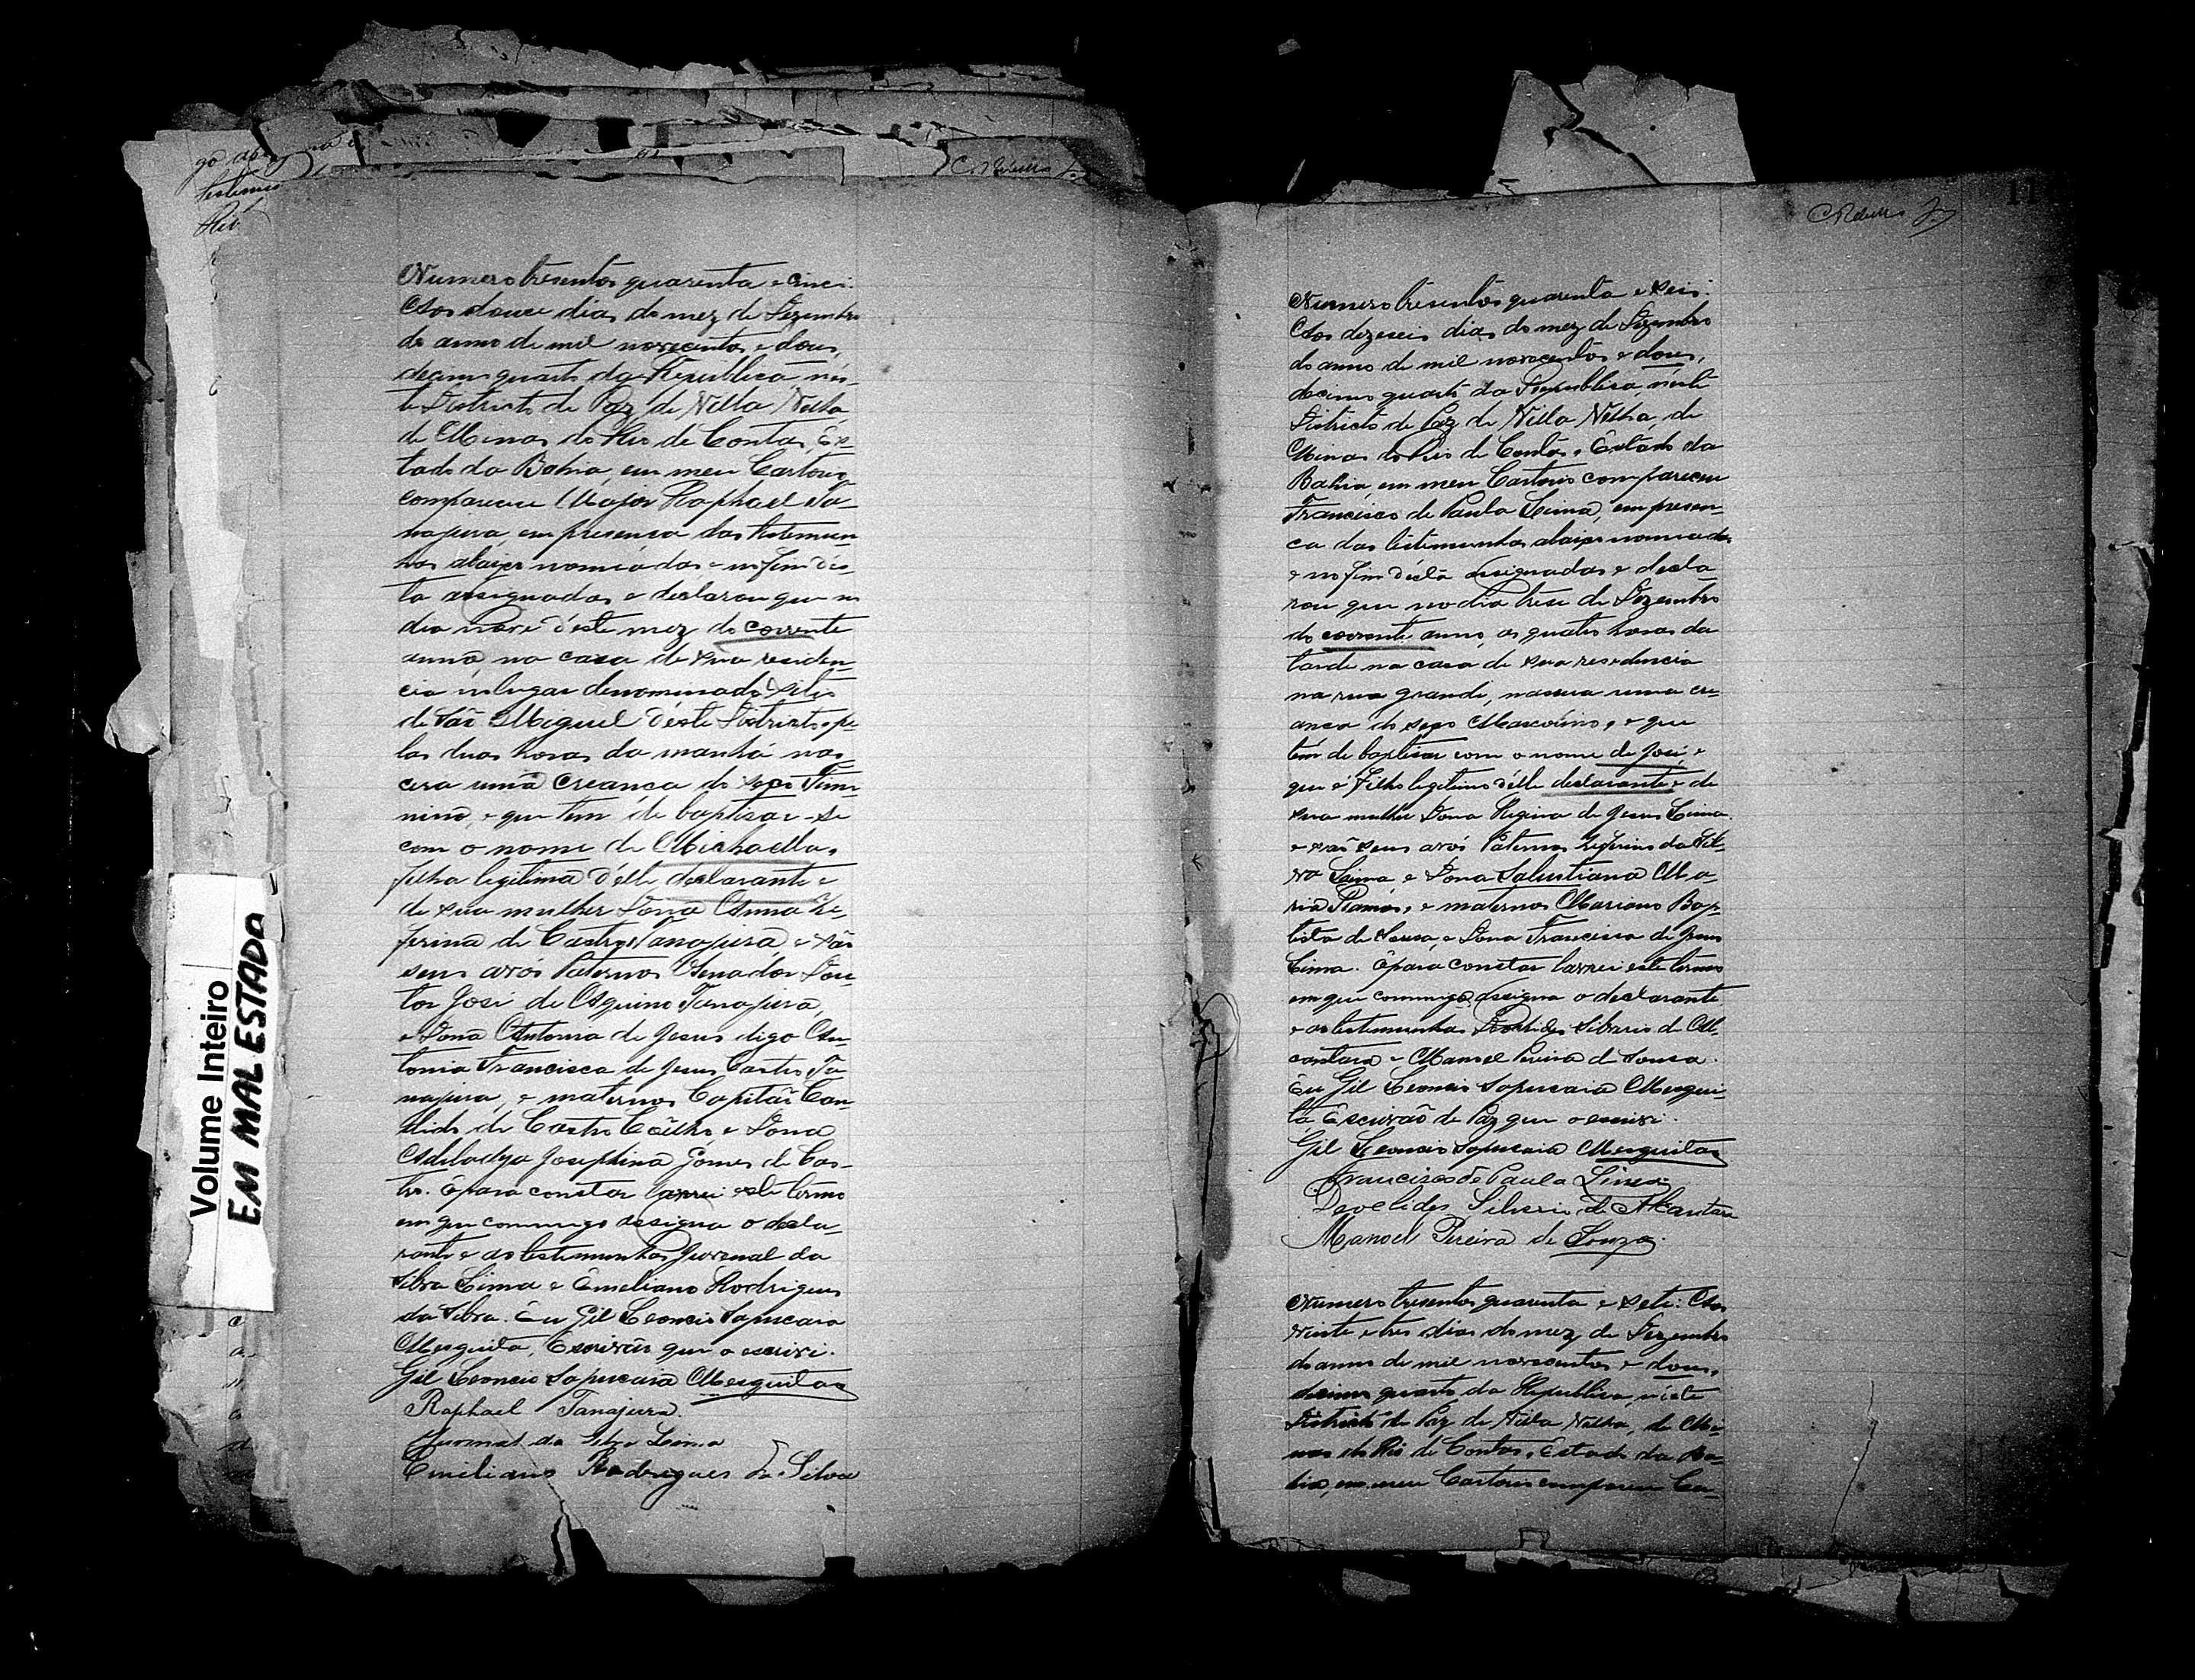 Numero tresentos quarenta e cinco:
Aos douse dias do mez de Dezembro
do anno de mil novecentos e dous,
decimo quarto da Republica, nes-
te Districto de Paz de Villa Velha
de Minas do Rio de Contas, Es-
tado da Bahia, em meu Cartorio
compareceu Major Raphael Ta-
najura, em presença das testemun-
has abaixo nomiadas e no fim des-
ta assignadas e declarou que no
dia nove d'este mez do corrente
anno, na casa de sua residen-
cia no lugar denominado Sitio
de São Miguel d'este Districto, pe-
las duas horas da manhã nas-
cera uma creança do sexo Femi-
nino, e que tem de baptisar-se
com o nome de Michaella,
filha legitima d'elle declarante e
de sua mulher Dona Anna Ze-
ferina de Castro Tanajura e são
seus avós Paternos Senador Dou-
tor José de Aquino Tanajura,
e Dona Antonia de Jesus digo An-
tonia Francisca de Jesus Castro Ta
najura, e maternos Capitão Can-
dido de Castro Coêlho e Dona
Josephina Gomes de Cas-
tro. E para constar lavrei este termo
em que commigo assigna o decla-
rante e as testemunhas Juvenal da
Silva Lima e Emeliano Rodrigues
da Silva. Eu Gil Leoncio Sapucaia
Mesquita, Escrivão que o escrivi.
Gil Leoncio Sapucaia Mesquita
Raphael Tanajura.
Juvenal da Silva Lima
Emiliano Rodrigues da Silva
11
Numero tresentos quarenta e seis:
Aos dezeseis dias do mez de Dezembro
do anno de mil novecentos e dous,
decimo quarto da Republica, n'este
Districto de Paz de Villa Velha, de
Minas do Rio de Contas, Estado da
Bahia, em meu Cartorio compareceu
Francisco de Paula Lima, em presen-
ca das testemunhas abaixo nomiadas
e no fim d'esta assignadas e decla
rou que no dia trese de Dezembro
do corrente anno, as quatro horas da
tarde na casa de sua residencia
na rua grande, nascera uma cre-
ança do sexo Masculino, e que
tem de baptisar com o nome de José, e
que é Filho legitimo d'elle declarante e de
sua mulher Dona Regina de Jesus Lima.
e são seus avós Paternos Zeferino da Sil-
va Lima e Dona Salustiana Ma-
ria Ramos, e maternos Mariano Bap-
tista de Sousa, e Dona Francisca de Jesus
Lima. E para constar lavrei este termo
em que commigo assigna o declarante
e as testemunhas Deoclides Silverio de Al-
cantara e Manoel Pereira de Sousa.
Eu Gil Leoncio Sapucaia Mesqui-
ta, Escrivão de Paz que o escrivi.
Gil Leoncio Sapucaia Mesquita
Francisco de Paula Lima
Deoclides Silverio de Alcantara
Manoel Pereira de Souza.
Numero tresentos quarenta e sete: Aos
vinte e tres dias do mez de Dezembro
do anno de mil novecentos e dous,
decimo quarto da Republica, n'este
Districto de Paz de Villa Velha, de Mi-
nas do Rio de Contas, Estado da Ba-
hia, em meu Cartorio compareceu Ca-
Volume Inteiro
EM MAL ESTADO